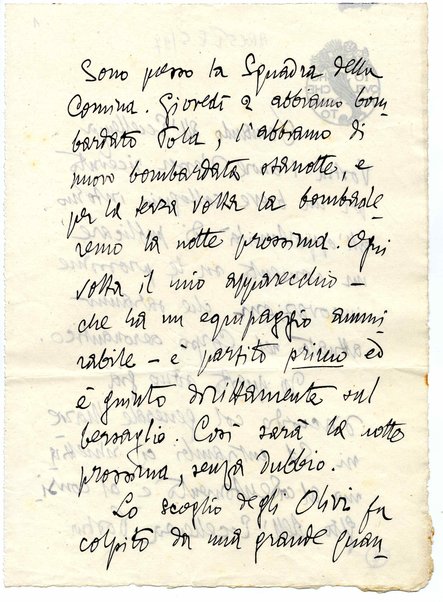 Sono presso la Squadra della
Comina. Giovedì 2 abbiamo bom-
bardato Pola, l'abbiamo di
nuovo bombardata stanotte, e
per la terza volta la bombarde-
remo la notte prossima. Ogni
volta il mio apparecchio –
che ha un equipaggio ammi-
rabile – è partito primo ed
è giunto drittamente sul
bersaglio. Così sarà la notte
prossima, senza dubbio.
Lo scoglio degli Olivi fu
colpito da una grande quan-